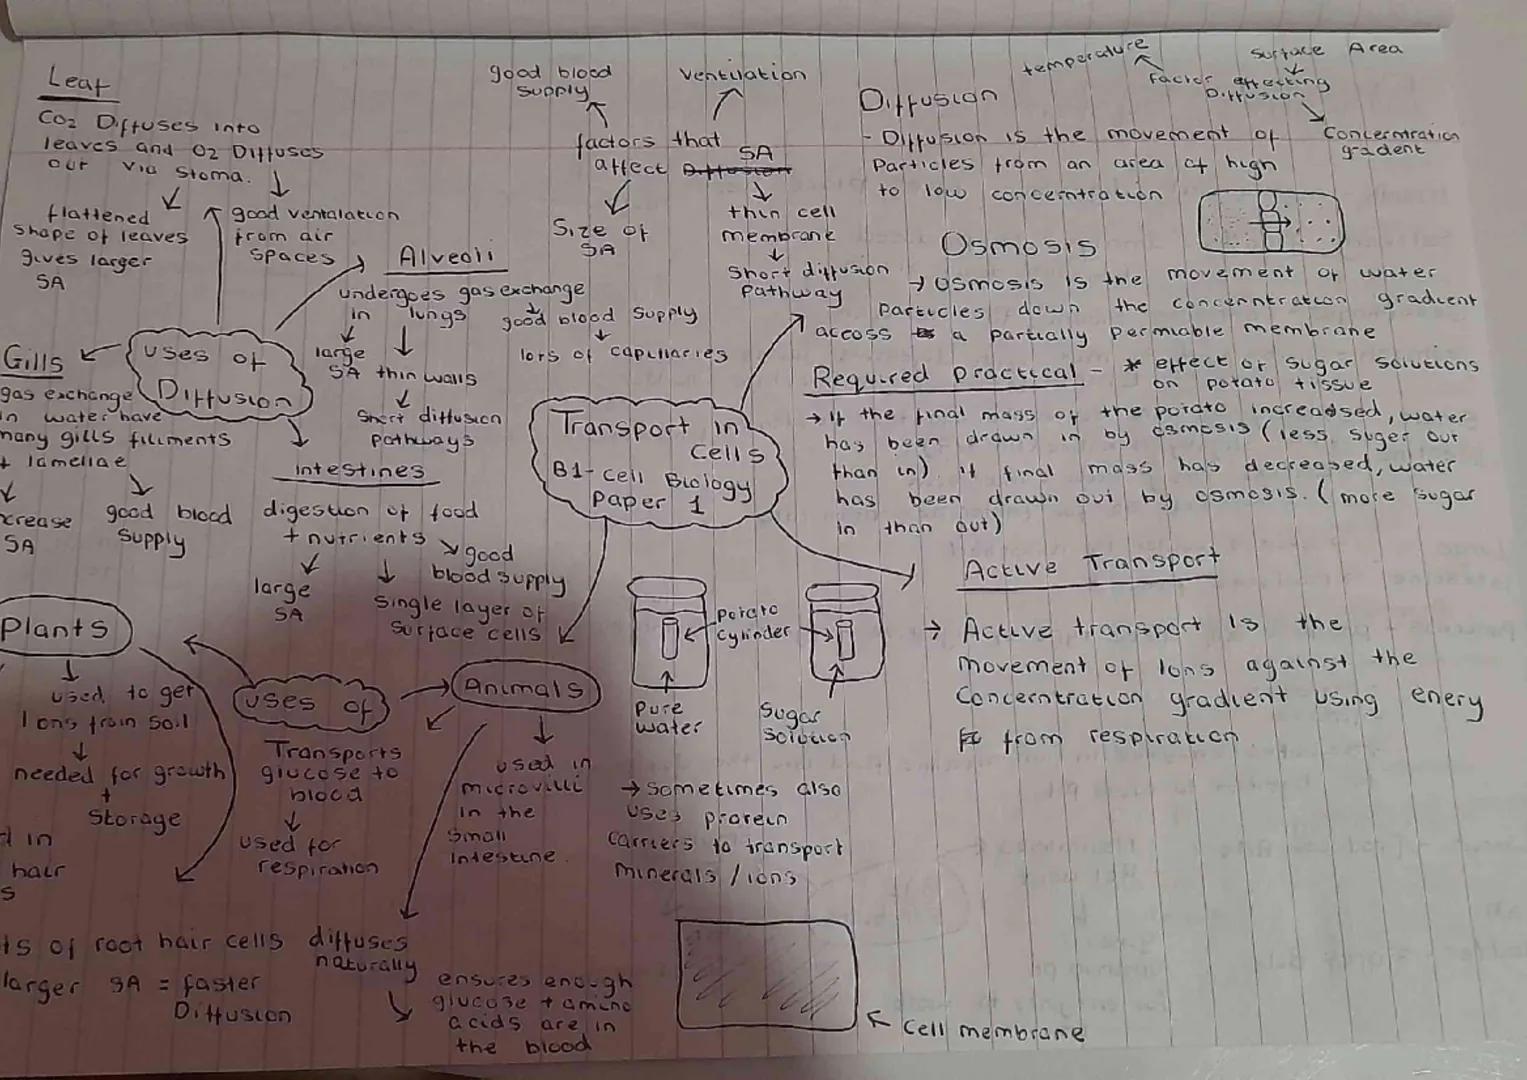 Leaf
CO2 Diffuses into
leaves and O2 Diffuses
out via stoma.
flattened
shape of leaves
gives larger
SA
good ventalation
from air
spaces
good blood
supply
ventilation
factors that
affect SA
Size of
SA
thin cell
membrane
Short diffusion
pathway
temperature
Surface Area
Factors effecting
Diffusion
Concerntration
gradent
Diffusion
- Diffusion is the movement of
Particles from an area of high
to low concerntration
Osmosis
→ Osmosis is the movement of water
particles down the concerntration gradient
accoss a partially permiable membrane
Required practical - * effect of sugar solutions
on potato tissue
→ If the final mass of the potato increadsed, water
has been drawn in by osmosis (less suger out
than in). if final mass has decreased, water
has been drawn out by osmosis. (more sugar
in than out)
Alveoli
undergoes gas exchange
in lungs
large
SA
thin walls
Short diffusion
pathways
good blood supply
lots of capillaries
Uses of
Diffusion
Gills
gas exchange
in water have
many gills filiments
+ lamellae
crease
SA
good blood
supply
Intestines
digestion of food
+ nutrients
large
SA
good
blood supply
single layer of
surface cells
Transport in
Cells
B1- cell Biology
Paper 1
Potato
cylinder
Pure
water
Sugar
Solution
Active Transport
→ Active transport is the
movement of ions against the
concerntration gradient using enery
from respiration
→ Sometimes also
uses protein
carriers to transport
minerals / ions
Cell membrane
Plants
used to get
ions from soil
needed for growth
+
storage
d in
hair
s
Uses of
Animals
Transports
glucose to
blood
used for
respiration
used in
microvilli
in the
small
intestine.
ts of root hair cells
larger SA = faster
Diffusion
diffuses
naturally
ensures enough
glucose + amino
acids are in
the blood